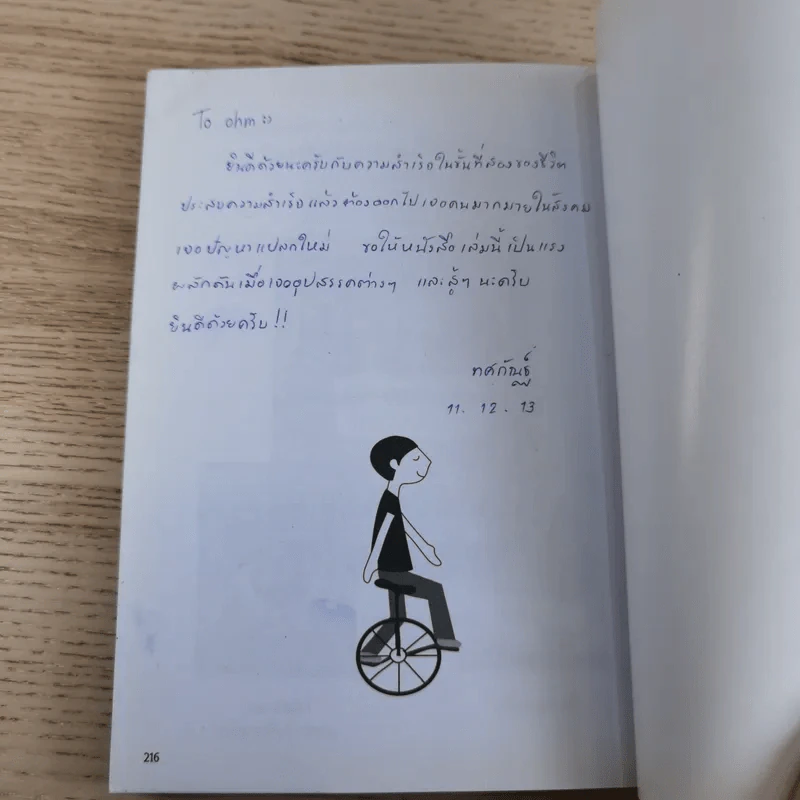 To ohm :)
ยินดีด้วยนะครับกับความสำเร็จในขั้นที่สองของชีวิต
ประสบความสำเร็จแล้วต้องออกไปเจอคนมากมายในสังคม
เจอปัญหาแปลกใหม่ ขอให้หนังสือเล่มนี้เป็นแรง
ผลักดันเมื่อเจออุปสรรคต่างๆ และสู้ๆ นะครับ
ยินดีด้วยครับ!!
11. 12. 13
216